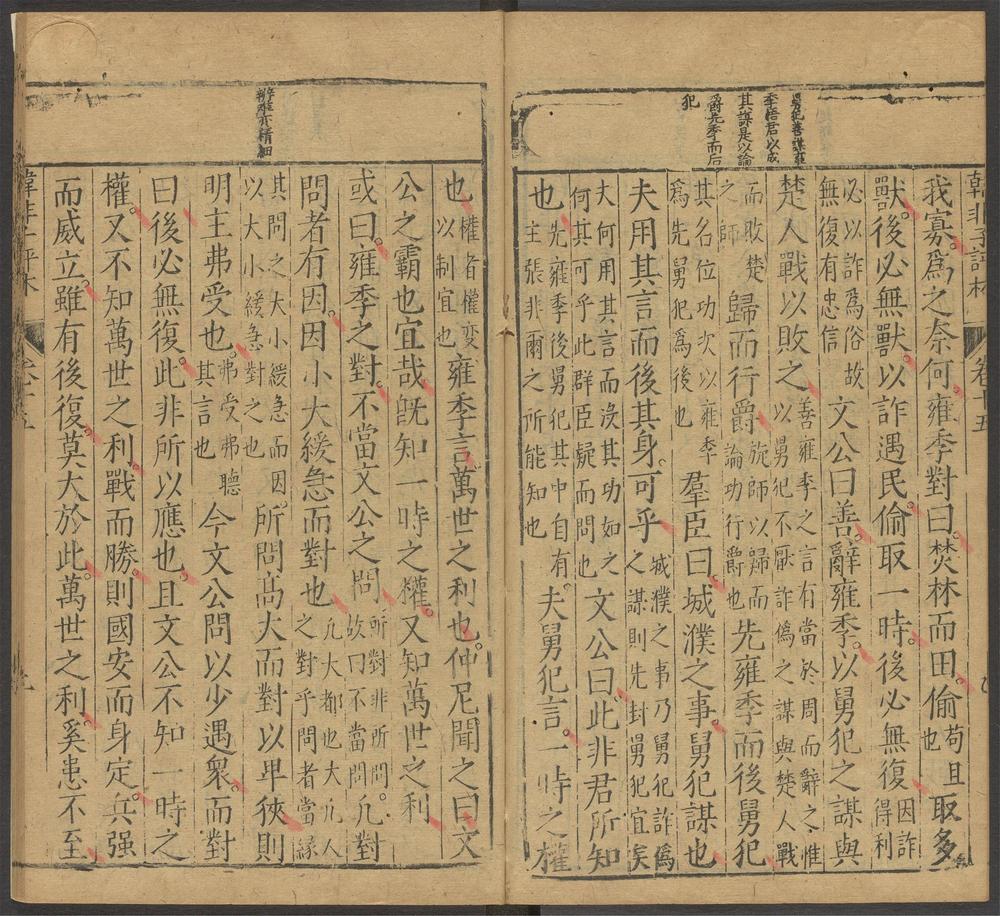 舅犯善謀雍
季悟君以成
其謀是以論
爵先季而后
犯
韓非子評林
卷十五
我寡爲之奈何雍季對曰焚林而田偷苟且也取多
獸後必無獸以詐遇民偷取一時後必無復因詐得利
必以詐爲俗故無復有忠信文公曰善辭雍季以舅犯之謀與
楚人戰以敗之善雍季之言有當於周而辭之惟以舅犯不厭詐僞之謀與楚人戰
而敗楚之師歸而行爵旋師以歸而論功行爵也先雍季而後舅犯
其名位功次以雍季爲先舅犯爲後也羣臣曰城濮之事舅犯謀也
夫用其言而後其身可乎城濮之事乃舅犯詐僞之謀則先封舅犯宜矣
夫何用其言而沒其功如之何其可乎此群臣疑而問也文公曰此非君所知
也先雍季後舅犯其中自有主張非爾之所能知也夫舅犯言一時之權
辨難亦精細
也權者權变以制宜也雍季言萬世之利也仲尼聞之曰文
公之霸也宜哉旣知一時之權又知萬世之利
或曰雍季之對不當文公之問所對非所問故曰不當問凡對
問者有因因小大緩急而對也凡大都也大凡人之對乎問者當緣
其問之大小緩急而因以大小緩急對之也所問高大而對以卑狹則
明主弗受也弗受弗聽其言也今文公問以少遇衆而對
曰後必無復此非所以應也且文公不知一時之
權又不知萬世之利戰而勝則國安而身定兵强
而威立雖有後復莫大於此萬世之利奚患不至
韓非子評林